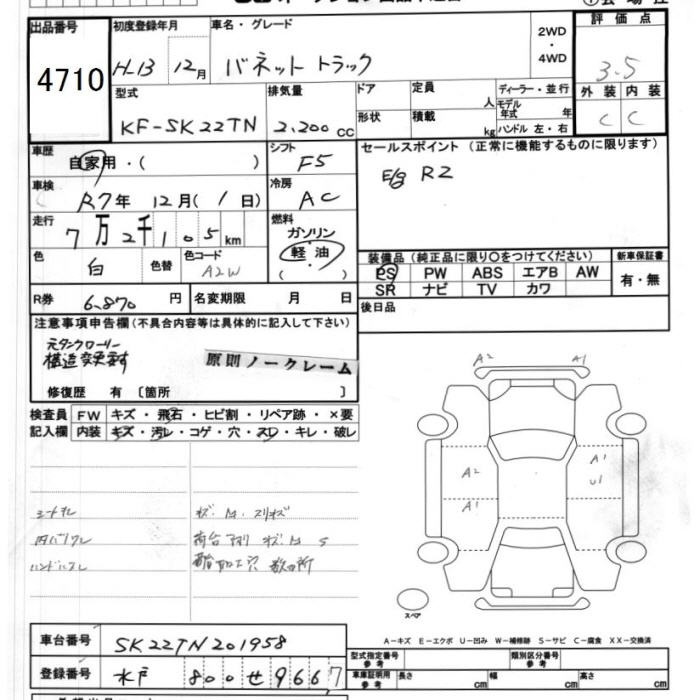 出品番号
4710
初度登録年月
H.13 12月
車名・グレード
バネット トラック
2WD
・
4WD
評価点
3.5
外装 内装
C C
型式
KF-SK22TN
排気量
2.200 cc
ドア
形状
定員
人
積載
kg
ディーラー・並行
モデル
年式 年
ハンドル 左・右
車歴
自家用・( )
シフト
F5
セールスポイント (正常に機能するものに限ります)
E/g R2
車検
R7年 12月(1日)
冷房
AC
走行
7万2千105km
燃料
ガソリン
軽油
( )
色
白
色替
色コード
A2W
装備品(純正品に限り〇をつけてください)
PS PW ABS エアB AW
SR ナビ TV カワ
新車保証書
有・無
R券
6.870 円
名変期限 月 日
後日品
注意事項申告欄(不具合内容等は具体的に記入して下さい)
元タンクローリー
構造変更すす
原則ノークレーム
修復歴 有〔箇所 〕
検査員 FW キズ・飛石・ヒビ割・リペア跡・×要
記入欄 内装 キズ・汚レ・コゲ・穴・スレ・キレ・破レ
A2 A1
A2 A1
U1
A1
シートスレ キズ・M・スリキズ
内バリスレ 荷台 キズ M S
ハンドルスレ 穴 数ヶ所
スペア
A-キズ E-エクボ U-凹み W-補修跡 S-サビ C-腐食 XX-交換済
車台番号
SK22TN201958
登録番号
水戸 800 せ 9667
型式指定番号
参考
類別区分番号
参考
車庫証明用
参考
長さ cm
幅 cm
高さ cm